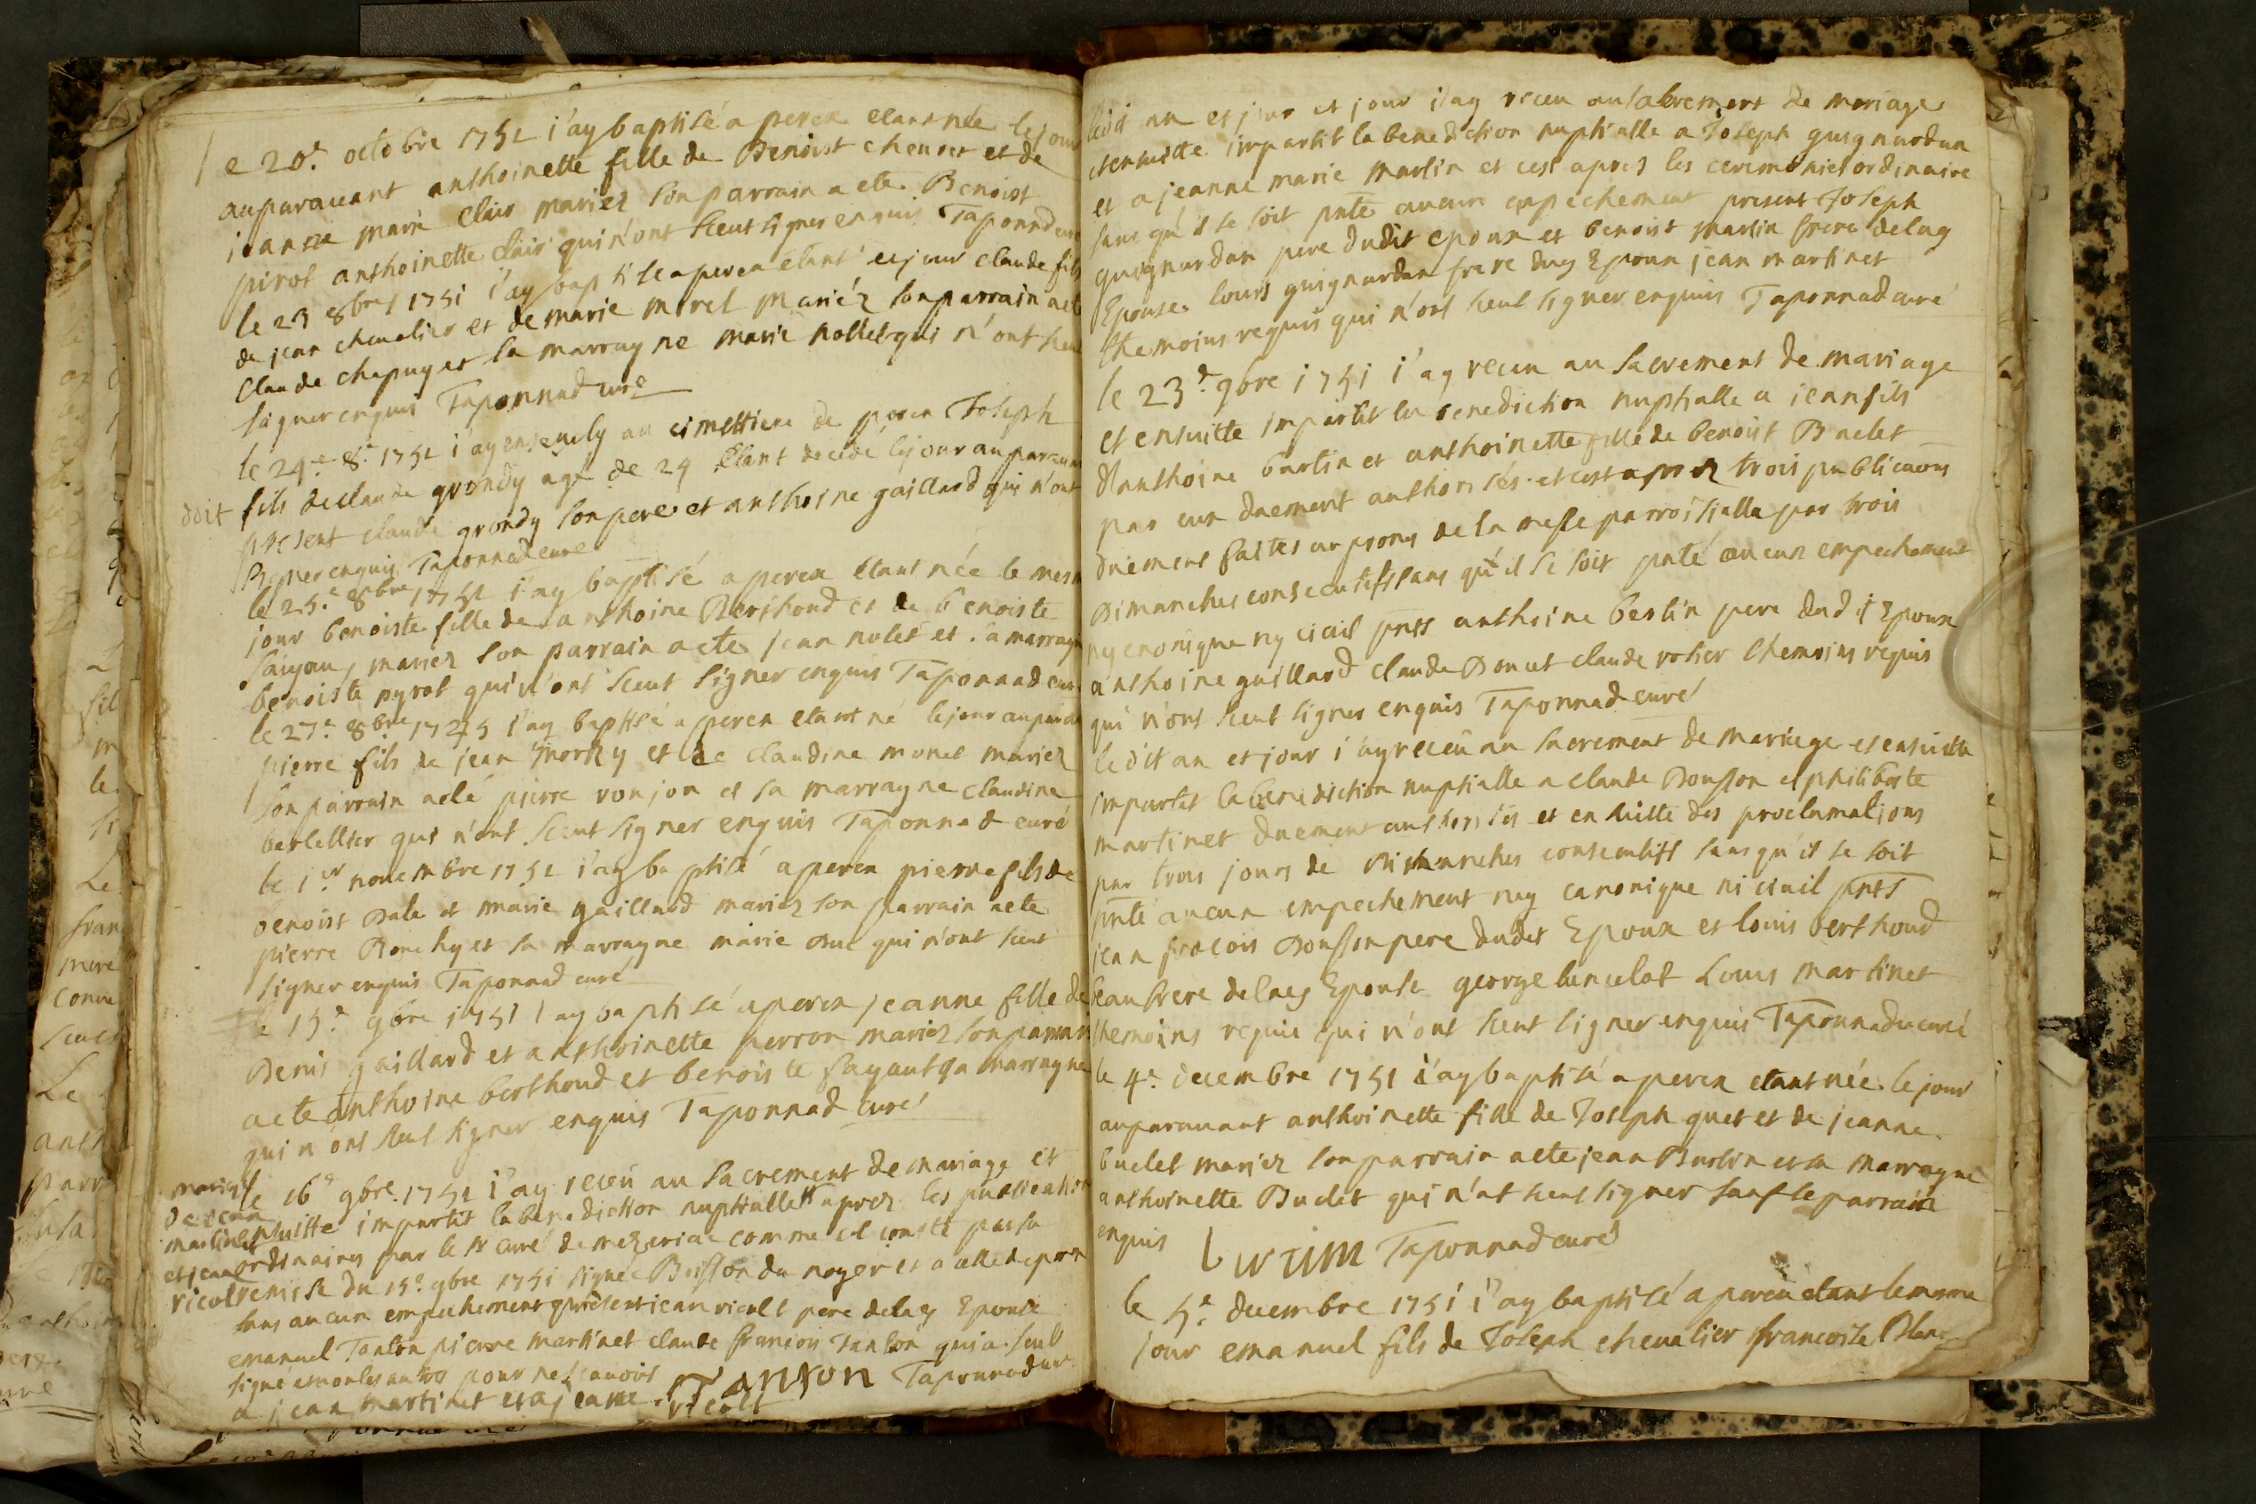 le 20e octobre 1751 i'ay baptisé a perex etant née le jour
auparauant anthoinette fille de Benoist cheuret et de
jeanne marie clair mariez son parrain a ete Benoist
pirot anthoinette clair qui n'ont sceut signer enquis Taponnad curé
le 23 8bre 1751 i'ay baptise a perex etant ne jour claude fils
de jean cheualier et de marie morel mariéz son parrain a ete
claude chapuy et la marragne marie nollet qui n'ont sceu
signer enquis Taponnad curé
le 24e 8e 1751 i'ay enseuely au cimettiere de perex Joseph
doit fils de claude grondy agé de 24 etant decedé le jour auparauant
present claude grondy son pere et anthoine gaillard qui n'ont
signer enquis Taponnad curé
le 25e 8bre 1751 i'ay baptisé a perex etant née le mesme
jour benoiste fille de anthoine Berthoud et de benoiste
mariez son parrain a ete jean nolet et sa marragne
benoiste pyrot qui n'ont sceut signer enquis Taponnad curé
le 27e 8bre i'ay baptisé a perex etant né le jour auparauant
pierre fils de jean morsy et de claudine monet mariez
son parrain a eté pierre ronjon et sa marragne claudine
berlellier qui n'ont sceut signer enquis Taponnad curé
le 1er nouembre 1751 i'ay baptisé a perex pierre fils de
benoist Dale et marie gaillard mariez son parrain a ete
pierre Bonchy et sa marragne marie Duc qui n'ont sceut
signer enquis Taponnad curé
le 15e 9bre 1751 i'ay baptisé a perex jeanne fille de
Denis gaillard et anthoinette perron mariez son parrain
a ete anthoine berthoud et benoiste sa marragne
qui n'ont sceut signer enquis Taponnad curé
mariage
de jean
martinet
et jeanne
ricol
le 16e 9bre 1751 i'ay receu au sacrement de mariage et
ensuitte impartit la benediction nuptialle apres les publications
ordinaires par le sr curé de mezeriac comme il conste par sa
remise du 15e 9bre 1751 signé Buisson du noyer et a celle de perex
sans aucun empechement present jean ricolt pere de lad Epouse
emanuel Tanton pierre martinet claude francois Tanton qui a seul
signé et non les autres pour ne scauoir
a jean martinet et a jeanne ricolt Tanton Taponnad curé
ledit an et jour et jour i'ay receu au sabcrement de mariage
et ensuitte impartit la benediction nuptialle a Joseph guignardan
et a jeanne marie martin et cest apres les ceremonies ordinaire
sans qu'il se soit pnté aucun empechement present Joseph
guignardan pere dudit epoux et benoist martin frere de lad
Epouse louis guignardan frere dud Epoux jean martinet
themoins requis qui n'ont sceut signer enquis Taponnad curé
le 23e 9bre 1751 i'ay receu au sacrement de mariage
et ensuitte impartit la benediction nuptialle a jean fils
d'anthoine bertin et anthoinette fille de benoist Buclet
par eux duement authorisés et cest aprez trois publicaons
duement faites au prones de la messe parroissialle par trois
Dimanches consecutifs sans qu'il se soit pnté aucun empechement
ny cnonique ny ciuil pnts anthoine bertin pere dudit Epoux
anthoine guillard claude Donet claude rolier themoins requis
qui n'ont sceut signer enquis Taponnad curé
ledit an et jour i'ay receu au sacrement de mariage et ensuitte
impartit la benediction nuptialle a claude Bousson et philiberte
martinet duement authorisés et en suitte des proclamations
par trois jours de Dimanches consecutifs sans qu'il se soit
pnté aucun empechement ny canonique ni ciuil pnts
jean fracois Bousson pere dudit Epoux et louis berthoud
beaufrere de lad Epouse george lancelot Louis martinet
themoins requis qui n'ont sceut signer enquis Taponnad curé
le 4e decembre 1751 i'ay baptisé a perex etant née le jour
auparauant anthoinette fille de Joseph guet et de jeanne
buclet mariez son parrain a ete jean Burtin et sa marragne
anthoinette Buclet qui n'at sceut signer sauf le parrain
enquis burtin Taponnad curé
le 5e decembre 1751 i'ay baptisé a perex etant le mesme
jour emanuel fils de Joseph cheualier francoise Blanc